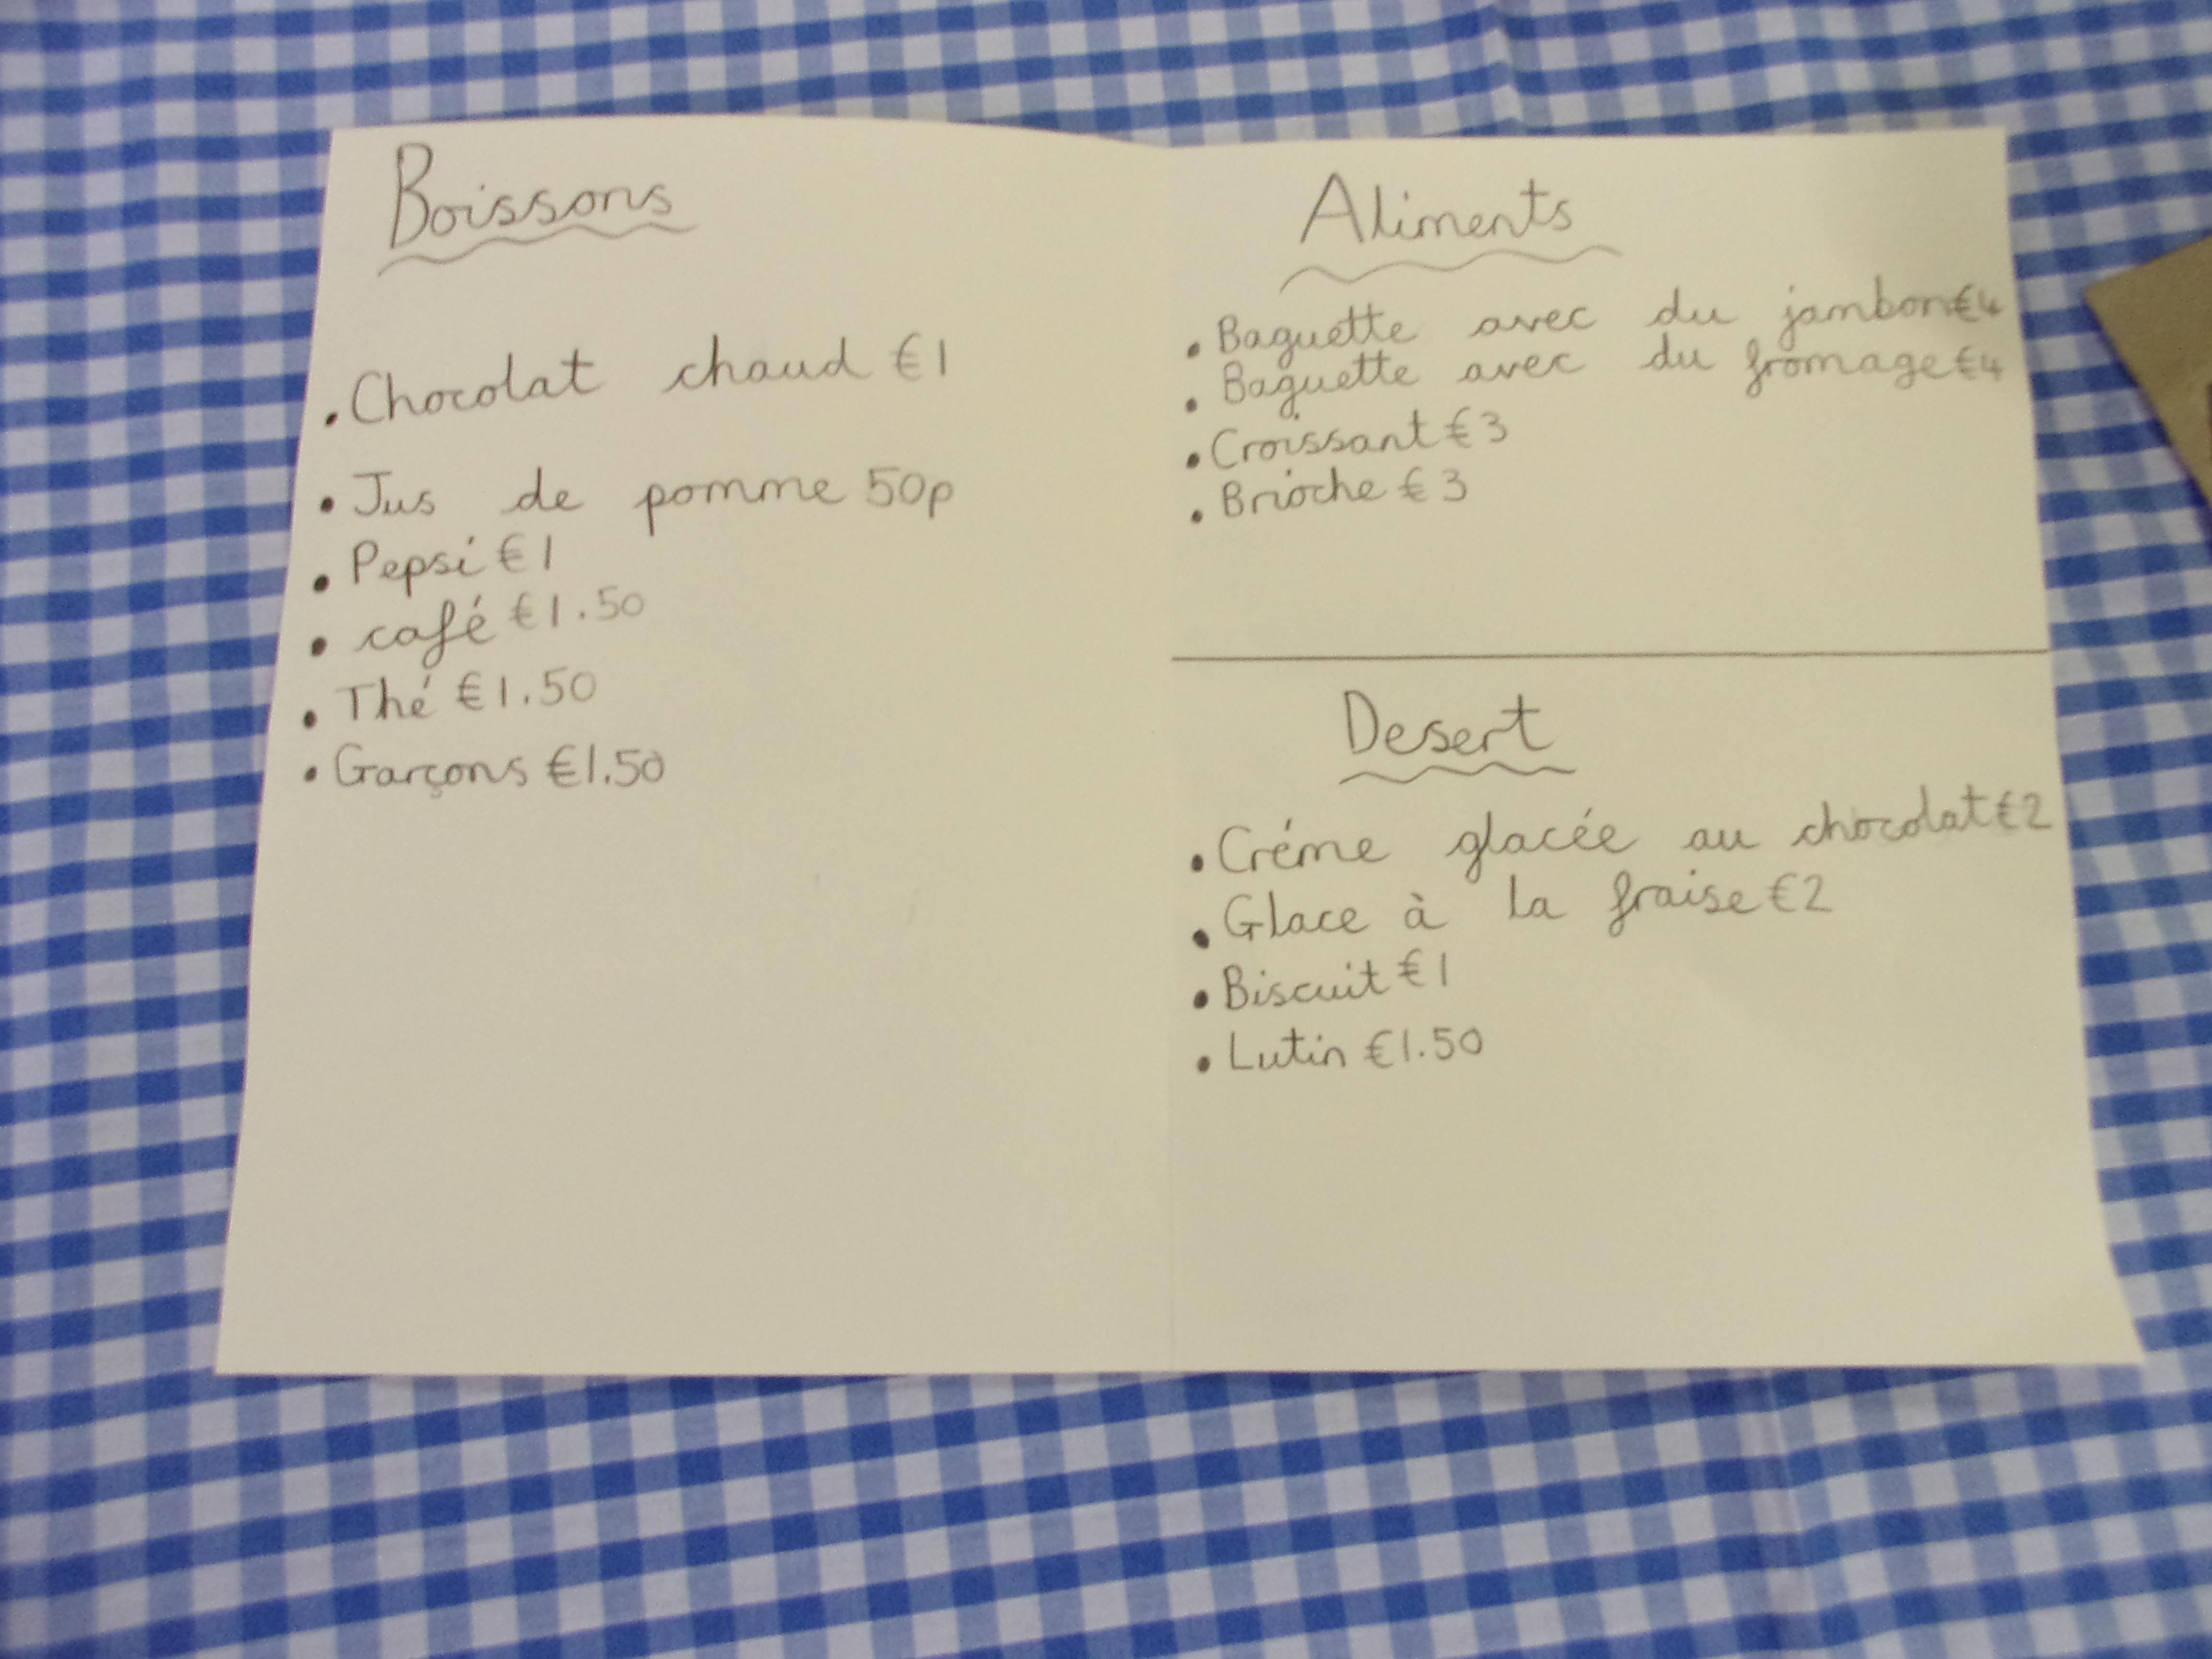 Boissons
• Chocolat chaud €1
• Jus de pomme 50p
• Pepsi €1
• café €1.50
• Thé €1.50
• Garçons €1.50
Aliments
• Baguette avec du jambon €4
• Baguette avec du fromage €4
• Croissant €3
• Brioche €3
Desert
• Créme glacée au chocolat €2
• Glace à la fraise €2
• Biscuit €1
• Lutin €1.50